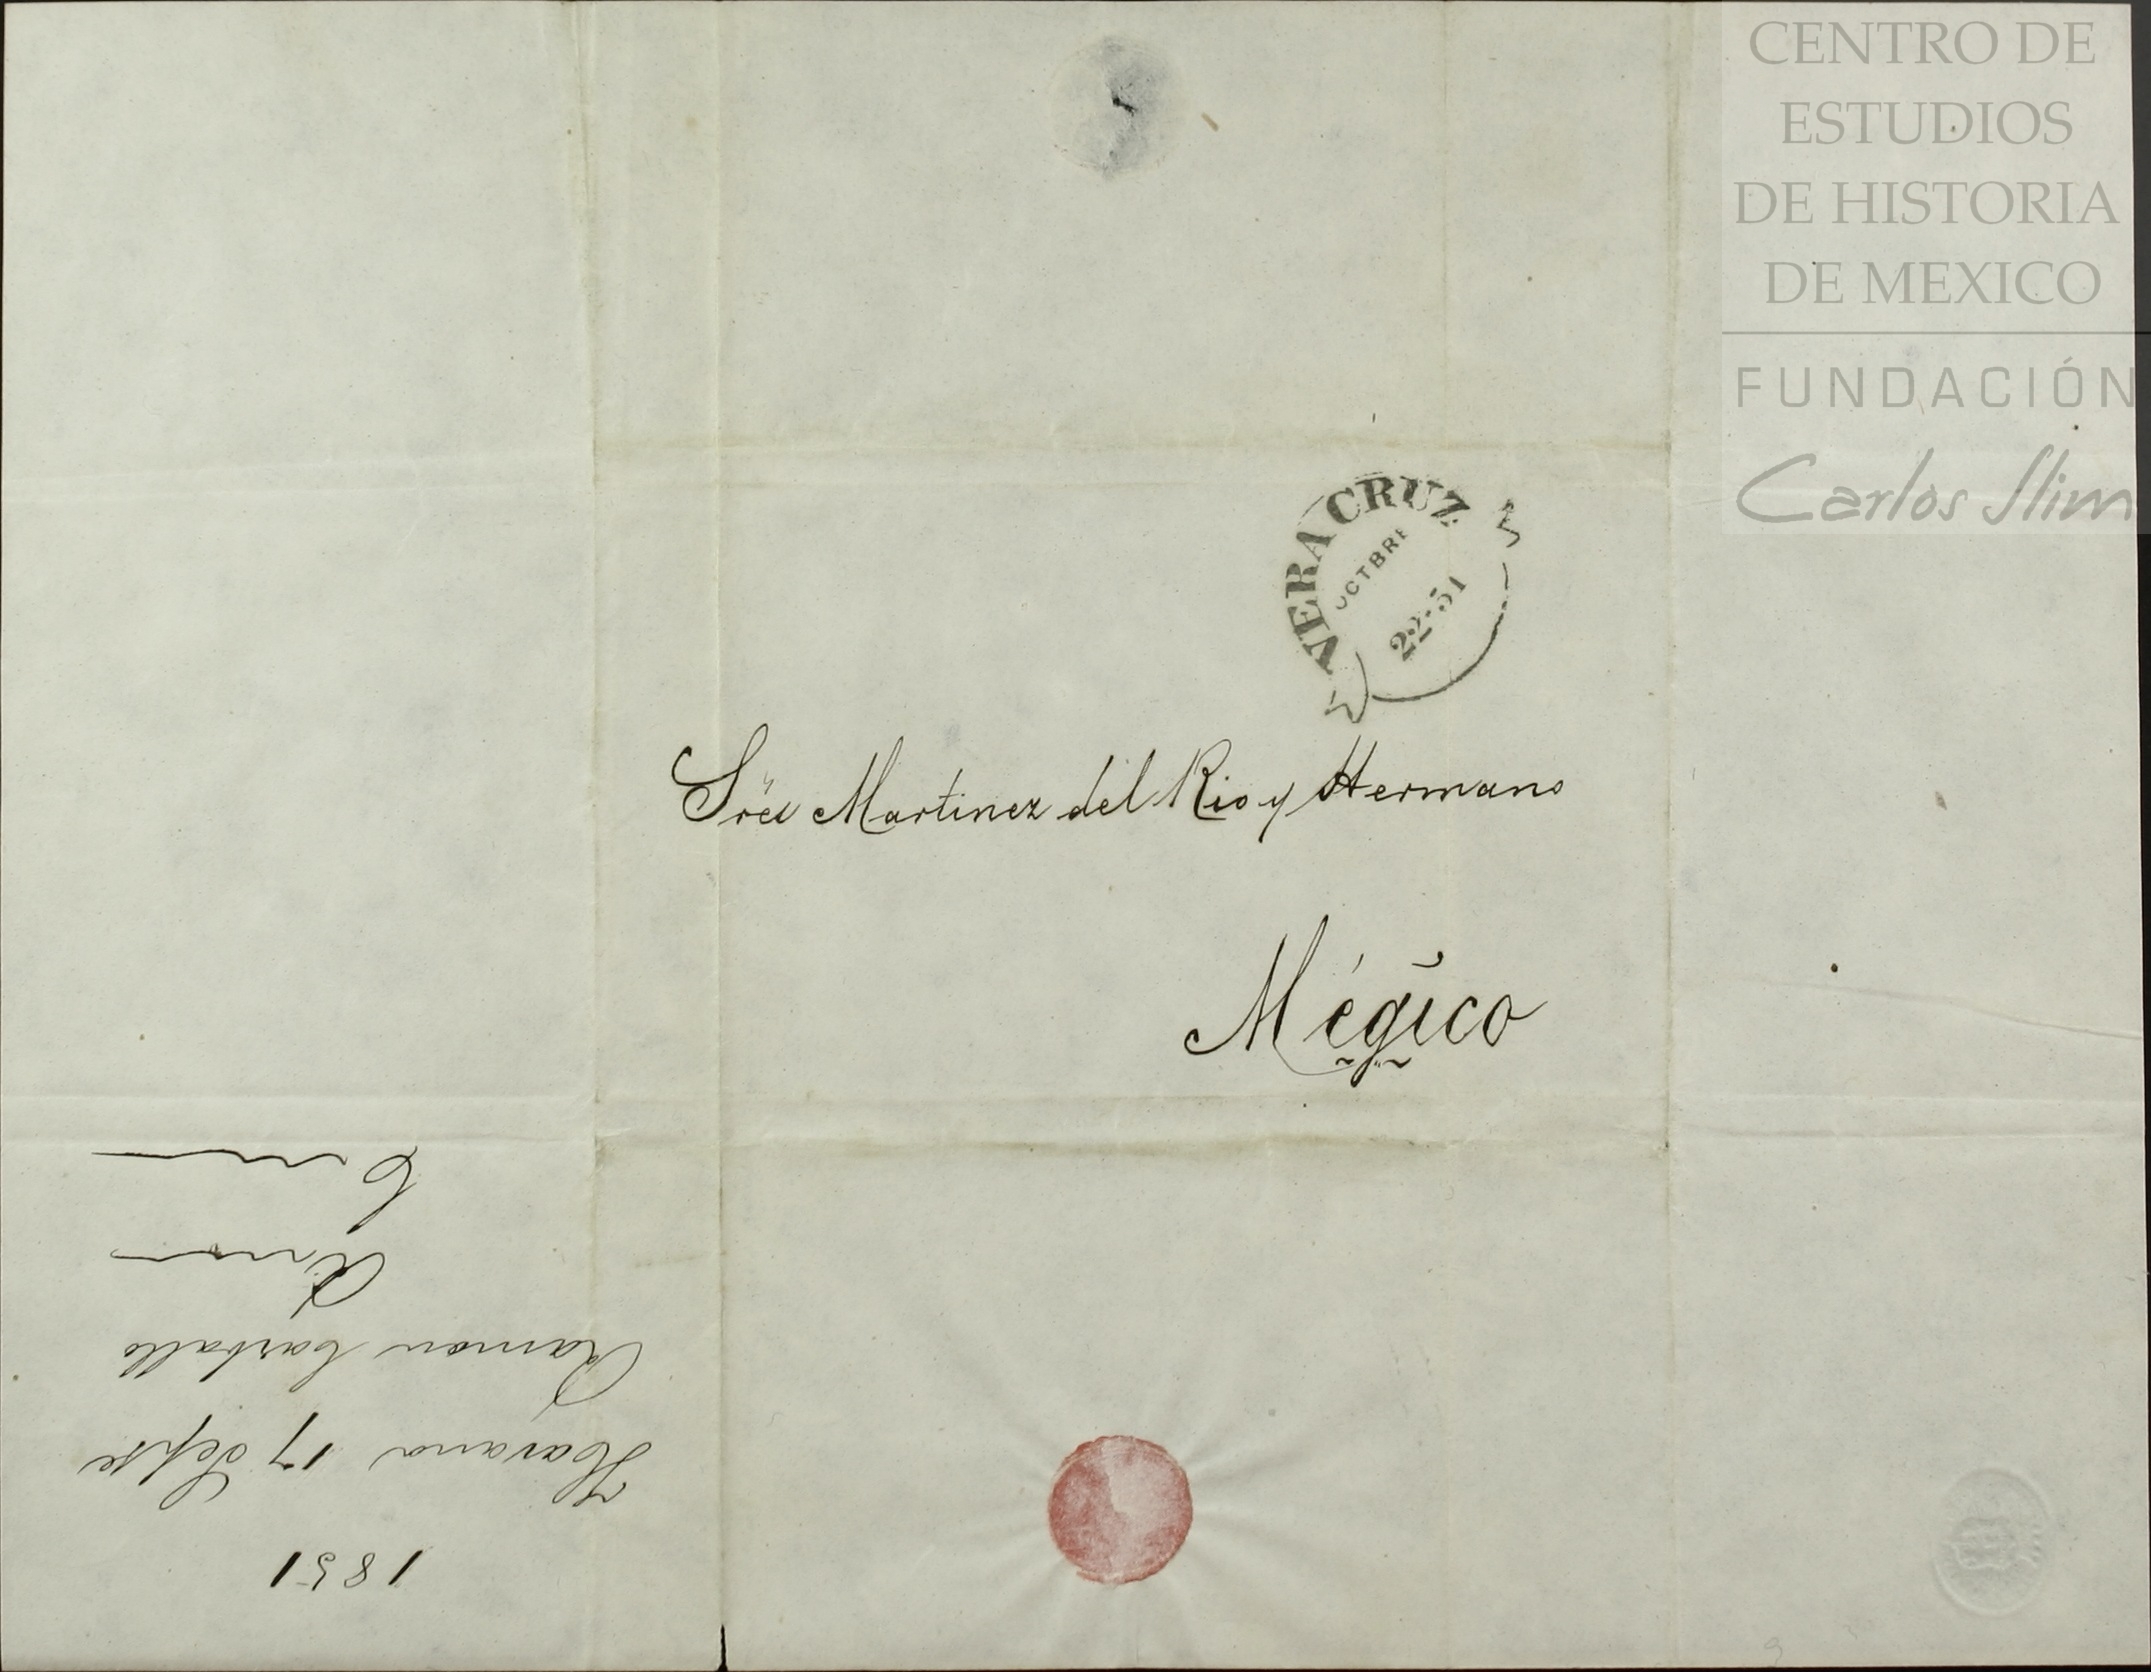 CENTRO DE
ESTUDIOS
DE HISTORIA
DE MEXICO
FUNDACIÓN
Carlos Slim
VERA CRUZ
OCTBRE
22·51
Sres Martinez del Rio y Hermano
Mégico
1851
Havana 17 Sepre
Ramon Carballo